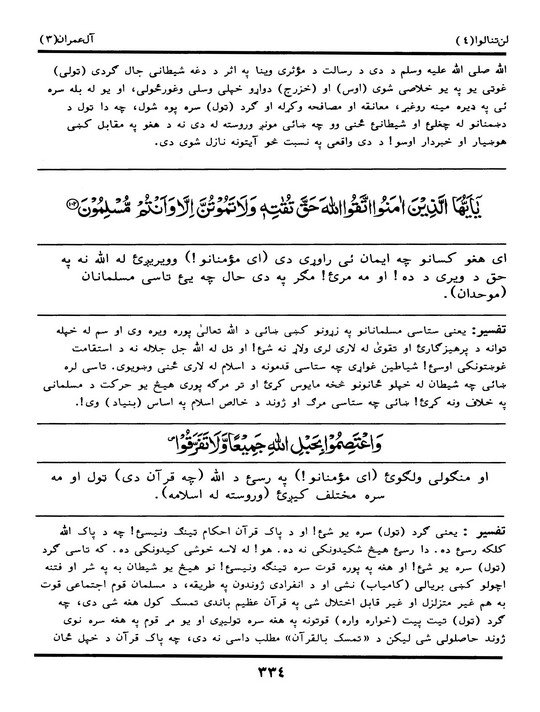 لن تنالوا (٤)
آل عمران (٣)
الله صلی الله علیه وسلم د دی د رسالت د مؤثری وینا په اثر د دغه شیطانی جال گردی (ټولی)
غوټی یو په یو خلاصی شوی (اوس) او (خزرج) دواړو خپلی وسلی وغورځولی، او یو له بله سره
ئی په ډیره مینه روغبړ، معانقه او مصافحه وکړله او گرد (ټول) سره پوه شول، چه دا ټول د
دښمنانو له چغلئ او شیطانئ ځنی وو چه ښائی مونږ وروسته له دی نه د هغو په مقابل کښی
هوښیار او خبردار اوسو! د دی واقعی په نسبت څو آیتونه نازل شوی دی.
يَٰٓأَيُّهَا الَّذِيْنَ اٰمَنُوا اتَّقُوا اللّٰهَ حَقَّ تُقٰتِهٖ وَلَا تَمُوْتُنَّ اِلَّا وَاَنْتُمْ مُّسْلِمُوْنَ ۝١٠٢
ای هغو کسانو چه ایمان ئی راوړی دی (ای مؤمنانو!) وویریږئ له الله نه په
حق د ویری د ده! او مه مرئ! مگر په دی حال چه یئ تاسی مسلمانان
(موحدان).
تفسیر: یعنی ښتاسی مسلمانانو په زړونو کښی ښائی د الله تعالیٰ پوره ویره وی او سم له خپله
توانه د پرهیزگارئ او تقویٰ له لاری لری ولاړ نه شئ! او تل له الله جل جلاله نه د استقامت
غوښتونکی اوسئ! شیاطین غواړی چه ستاسی قدمونه د اسلام له لاری ځنی وښویوی. تاسی لره
ښائی چه شیطان له خپلو ځانونو څخه مایوس کړئ او تر مرگه پوری هیڅ یو حرکت د مسلمانی
په خلاف ونه کړئ! ښائی چه ستاسی مرگ او ژوند د خالص اسلام په اساس (بنیاد) وی!.
وَاعْتَصِمُوْا بِحَبْلِ اللّٰهِ جَمِيْعًا وَّلَا تَفَرَّقُوْا
او منگولی ولگوئ (ای مؤمنانو!) په رسئ د الله (چه قرآن دی) ټول او مه
سره مختلف کیږئ (وروسته له اسلامه).
تفسیر : یعنی گرد (ټول) سره یو شئ! او د پاک قرآن احکام ټینگ ونیسئ! چه د پاک الله
کلکه رسئ ده. دا رسئ هیڅ شکیدونکی نه ده. هو! له لاسه خوشی کیدونکی ده. که تاسی گرد
(ټول) سره یو شئ! او هغه په پوره قوت سره ټینگه ونیسئ! نو هیڅ یو شیطان به په شر او فتنه
اچولو کښی بریالی (کامیاب) نشی او د انفرادی ژوندون په طریقه، د مسلمان قوم اجتماعی قوت
به هم غیر متزلزل او غیر قابل اختلال شی په قرآن عظیم باندی تمسک کول هغه شی دی، چه
گرد (ټول) تیت پیت (خواره واره) قوتونه په هغه سره ټولیږی او یو مړ قوم په هغه سره نوی
ژوند حاصلولی شی لیکن د «تمسک بالقرآن» مطلب داسی نه دی، چه پاک قرآن د خپل ځان
٣٣٤